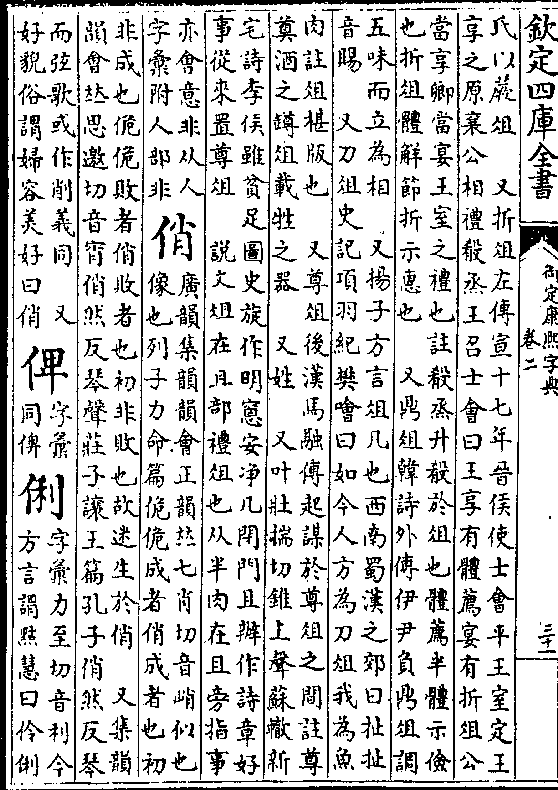 欽定四庫全書
御定康熙字典
卷二
三十一
氏以蕨俎 又折俎左傳宣十七年晉侯使士會平王室定王
享之原襄公相禮殽烝王召士會曰王享有體薦宴有折俎公
當享卿當宴王室之禮也註殽烝升殽於俎也體薦半體示儉
也折俎體解節折示惠也 又鼎俎韓詩外傳伊尹負鼎俎調
五味而立為相 又揚子方言俎几也西南蜀漢之郊曰杫杫
音賜 又刀俎史記項羽紀樊噲曰如今人方為刀俎我為魚
肉註俎椹版也 又尊俎後漢馬融傳起謀於尊俎之間註尊
奠酒之罇俎載牲之器 又姓 又叶壯揣切錐上聲蘇轍新
宅詩李侯雖貧足圖史旋作明窻安净几閉門且辦作詩章好
事從來置尊俎 說文俎在且部禮俎也从半肉在且旁指事
亦會意非从人
字彙附人部非
俏
廣韻集韻韻會正韻𠀤七肖切音峭似也
像也列子力命篇佹佹成者俏成者也初
非成也佹佹敗者俏敗者也初非敗也故迷生於俏 又集韻
韻會𠀤思邀切音宵俏然反琴聲莊子讓王篇孔子俏然反琴
而弦歌或作削義同 又
好貌俗謂婦容美好曰俏
俾
字彙
同俾
俐
字彙力至切音利今
方言謂黠慧曰伶俐